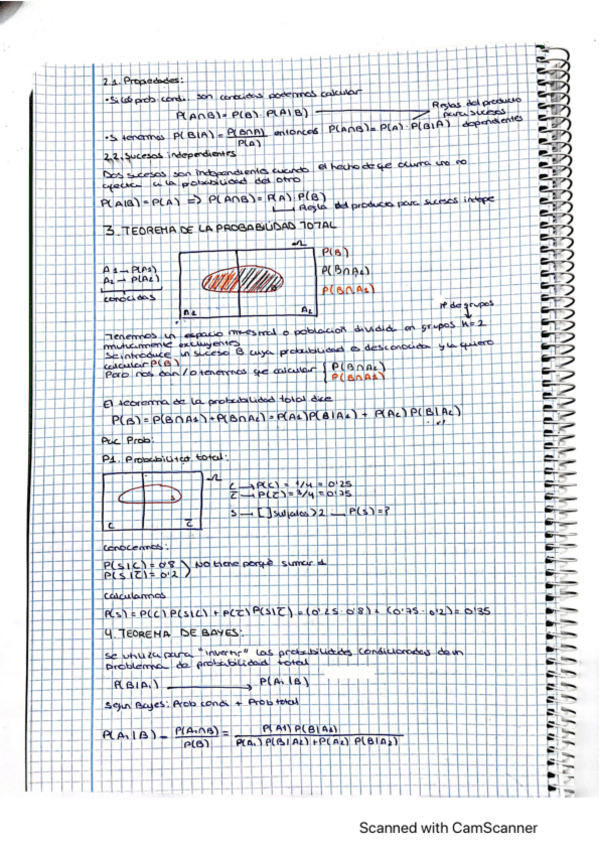 2.1. Propiedades:
· Si las prob. condi. son conocidas podemos calcular
P(A∩B) = P(B) · P(A|B)
Reglas del producto
para sucesos
dependientes
· Si tenemos P(B|A) = P(B∩A)/P(A) entonces P(A∩B) = P(A) · P(B|A)
2.2. Sucesos independientes
Dos sucesos son independientes cuando el hecho de que ocurra uno no
afecta a la probabilidad del otro
P(A|B) = P(A) => P(A∩B) = P(A) · P(B)
Regla del producto para sucesos indepe
3. TEOREMA DE LA PROBABILIDAD TOTAL
Ω
P(B)
A1 → P(A1)
P(B∩A2)
A2 → P(A2)
P(B∩A1)
conocidas
B
A1
A2
nº de grupos
Tenemos un espacio muestral o población dividida en grupos K=2
mutuamente excluyentes
Se introduce un suceso B cuya probabilidad es desconocida y la quiero
calcular P(B)
Pero nos dan / o tenemos que calcular { P(B∩A2)
P(B∩A1)
El teorema de la probabilidad total dice
P(B) = P(B∩A1) + P(B∩A2) = P(A1) P(B|A1) + P(A2) P(B|A2)
Prob:
P1. Probabilidad total:
Ω
C → P(C) = 1/4 = 0'25
C̅ → P(C̅) = 3/4 = 0'75
S
S → [ ] sulfatos > 2 — P(S) = ?
C
C̅
Conocemos:
P(S|C) = 0'8
P(S|C̅) = 0'2
No tiene porqué sumar 1
Calculamos
P(S) = P(C) P(S|C) + P(C̅) P(S|C̅) = (0'25 · 0'8) + (0'75 · 0'2) = 0'35
4. TEOREMA DE BAYES:
Se utiliza para "invertir" las probabilidades condicionadas de un
problema de probabilidad total
P(B|A1) → P(A1|B)
Según Bayes: Prob condi + Prob total
P(A1|B) = P(A1∩B)/P(B) = P(A1) P(B|A1)/P(A1) P(B|A1) + P(A2) P(B|A2)
Scanned with CamScanner